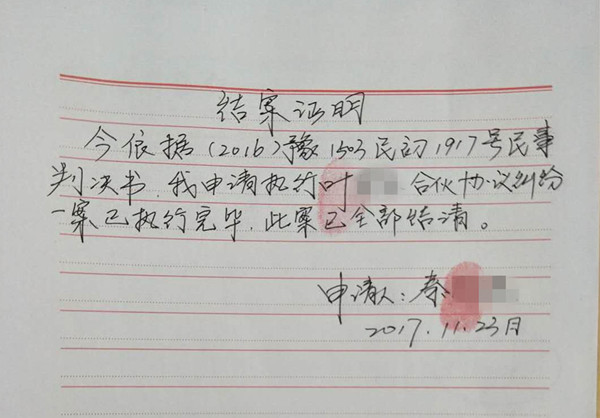 结案证明
今依据(2016)豫1503民初1917号民事
判决书,我申请执行叶 合伙协议纠纷
一案已执行完毕,此案已全部结清。
申请人:秦
2017.11.23日